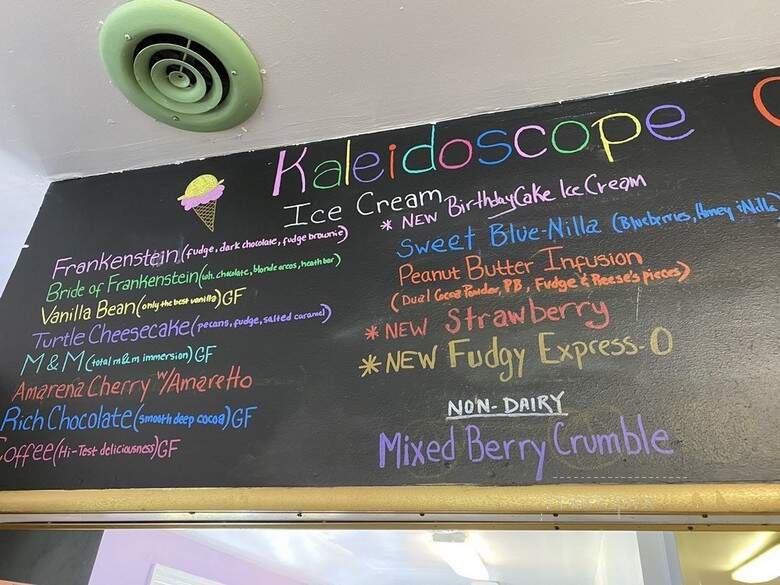 Kaleidoscope
Ice Cream
Frankenstein (fudge, dark chocolate, fudge brownie)
Bride of Frankenstein (wh. chocolate, blonde oreos, heath bar)
Vanilla Bean (only the best vanilla) GF
Turtle Cheesecake (pecans, fudge, salted caramel)
M & M (total m&m immersion) GF
Amarena Cherry w/Amaretto
Rich Chocolate (smooth deep cocoa) GF
Coffee (Hi-Test deliciousness) GF
* NEW Birthday Cake Ice Cream
Sweet Blue-Nilla (Blueberries, Honey & Nilla
Peanut Butter Infusion
(Dual Cocoa Powder, PB, Fudge & Reese's pieces)
* NEW Strawberry
* NEW Fudgy Express-O
NON-DAIRY
Mixed Berry Crumble